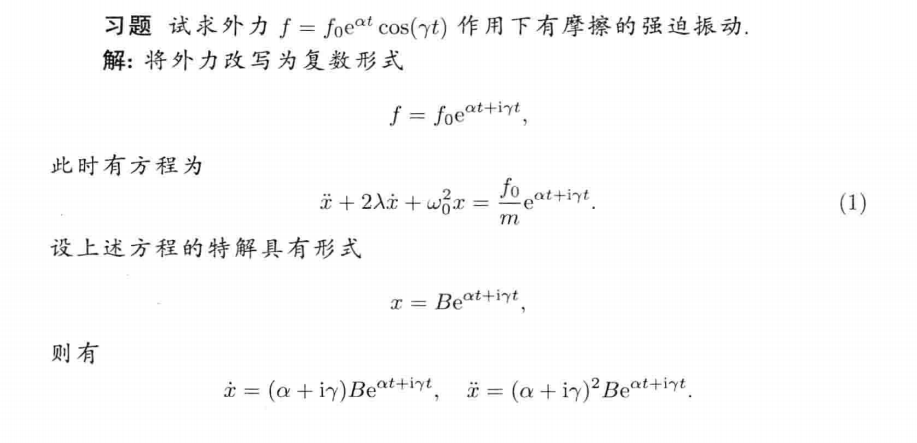 习题 试求外力 f = f₀e^{αt} cos(γt) 作用下有摩擦的强迫振动.
解: 将外力改写为复数形式
f = f₀e^{αt+iγt},
此时有方程为
ẍ + 2λẋ + ω₀²x = \frac{f₀}{m}e^{αt+iγt}. (1)
设上述方程的特解具有形式
x = Be^{αt+iγt},
则有
ẋ = (α + iγ)Be^{αt+iγt}, ẍ = (α + iγ)²Be^{αt+iγt}.